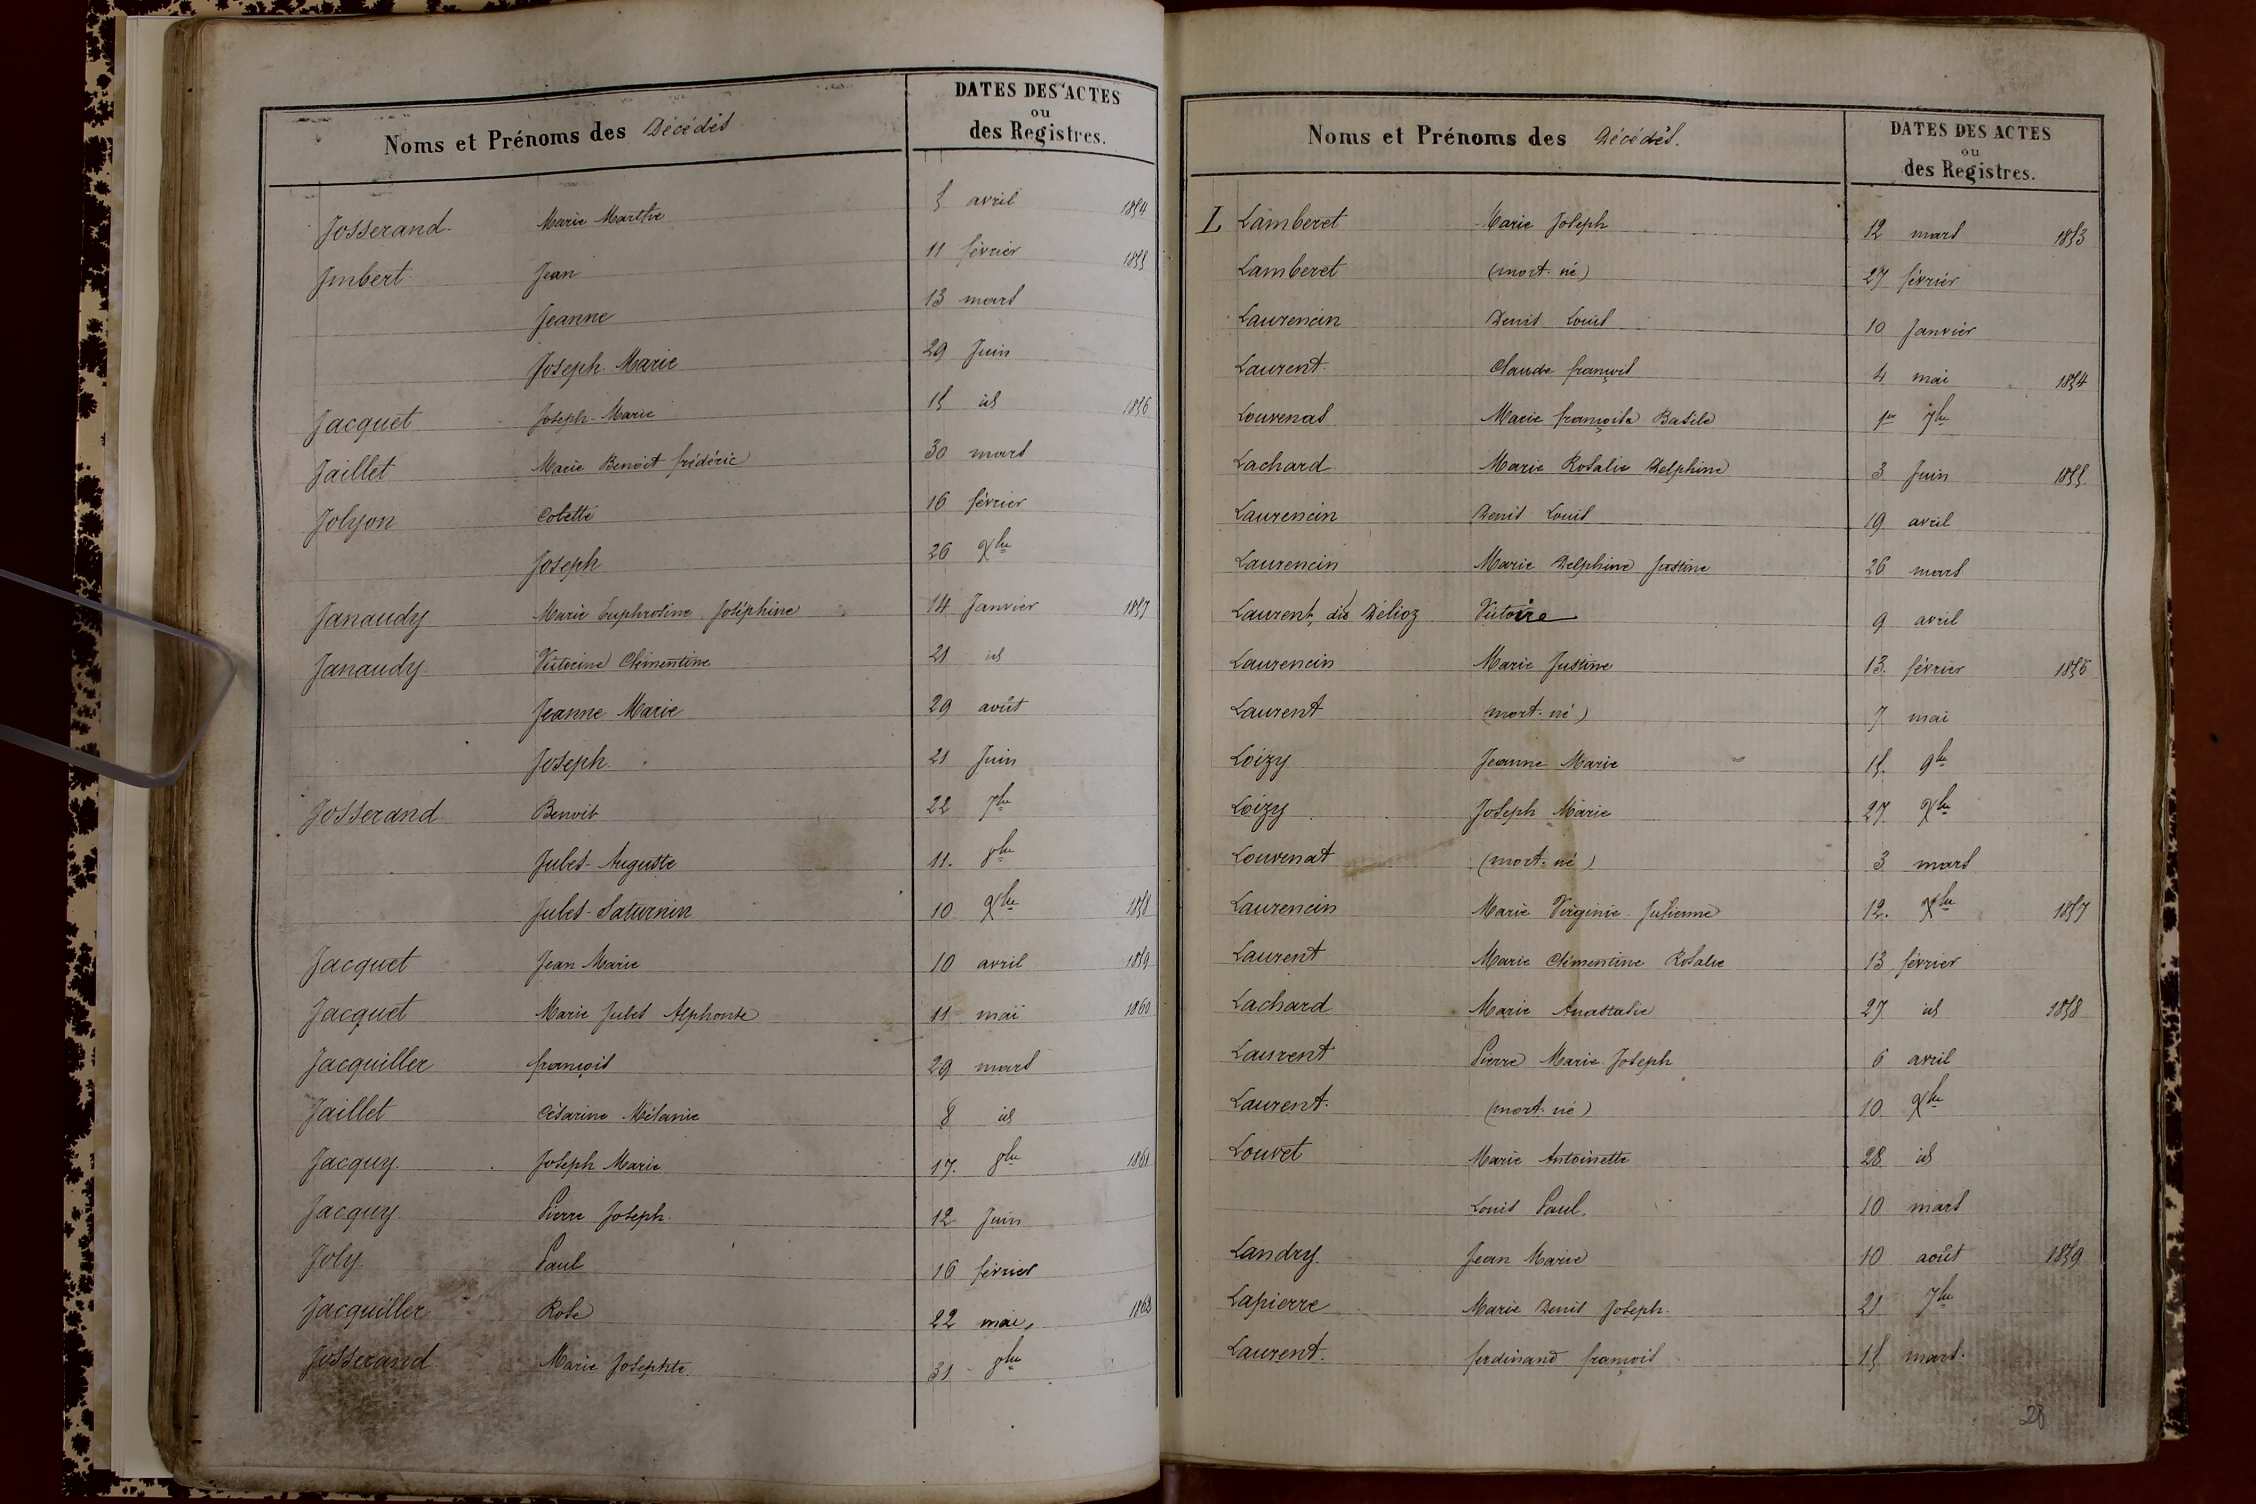 Noms et Prénoms des Décédés
DATES DES ACTES
ou
des Registres.
Josserand Marie Marthe 5 avril 1854
Jmbert Jean 11 février 1855
Jeanne 13 mars
Joseph Marie 29 Juin
Jacquet Joseph-Marie 15 id 1856
Jaillet Marie Benoit frédéric 30 mars
Jolyon Colette 16 février
Joseph 26 Xbre
Janaudy Marie Euphrosine Joséphine 14 Janvier 1857
Janaudy Victorine Clémentine 21 id
Jeanne Marie 29 août
Joseph 21 Juin
Josserand Benoit 22 7bre
Jules-Auguste 11. 8bre
Jules-Saturnin 10 Xbre 1858
Jacquet Jean Marie 10 avril 1859
Jacquet Marie Jules Alphonse 11 mai 1860
Jacquiller françois 29 mars
Jaillet Césarine Mélanie 8 id
Jacquy Joseph Marie 17. 8bre 1861
Jacquy Pierre Joseph 12 Juin
Joly Paul 16 février
Jacquiller Rose 22 mai 1862
Josserand Marie Josephte 31 8bre
Noms et Prénoms des Décédés.
DATES DES ACTES
ou
des Registres.
L Lamberet Marie Joseph 12 mars 1853
Lamberet (mort-né) 27 février
Laurencin Denis Louis 10 Janvier
Laurent Claude françois 4 mai 1854
Louvenas Marie françoise Basile 1er 7bre
Lachard Marie Rosalie Delphine 3 Juin 1855
Laurencin Denis Louis 19 avril
Laurencin Marie Delphine Justine 26 mars
Laurent, dit Délioz Victoire 9 avril
Laurencin Marie Justine 13. février 1856
Laurent (mort-né) 7 mai
Loizy Jeanne Marie 15. 9bre
Loizy Joseph Marie 27 Xbre
Louvenat (mort-né) 3 mars
Laurencin Marie Virginie Julienne 12. Xbre 1857
Laurent Marie Clémentine Rosalie 13 février
Lachard Marie Anastasie 27 id 1858
Laurent Pierre Marie Joseph 6 avril
Laurent (mort-né) 10 Xbre
Louvet Marie Antoinette 28 id
Louis Paul 10 mars
Landry Jean Marie 10 août 1859
Lapierre Marie Denis Joseph 21 7bre
Laurent ferdinand françois 15 mars
28